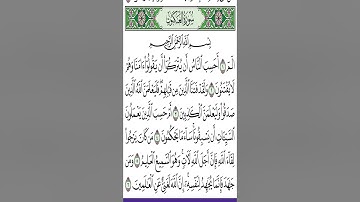 سُورَةُ العَنكَبُوتِ
بِسْمِ اللَّهِ الرَّحْمَٰنِ الرَّحِيمِ
الٓمٓ ١ أَحَسِبَ النَّاسُ أَن يُتْرَكُوٓا۟ أَن يَقُولُوٓا۟ ءَامَنَّا وَهُمْ
لَا يُفْتَنُونَ ٢ وَلَقَدْ فَتَنَّا الَّذِينَ مِن قَبْلِهِمْ فَلَيَعْلَمَنَّ اللَّهُ الَّذِينَ
صَدَقُوا۟ وَلَيَعْلَمَنَّ الْكَٰذِبِينَ ٣ أَمْ حَسِبَ الَّذِينَ يَعْمَلُونَ
السَّيِّـَٔاتِ أَن يَسْبِقُونَا سَآءَ مَا يَحْكُمُونَ ٤ مَن كَانَ يَرْجُوا۟
لِقَآءَ اللَّهِ فَإِنَّ أَجَلَ اللَّهِ لَـَٔاتٍ وَهُوَ السَّمِيعُ الْعَلِيمُ ٥ وَمَن
جَٰهَدَ فَإِنَّمَا يُجَٰهِدُ لِنَفْسِهِۦٓ إِنَّ اللَّهَ لَغَنِىٌّ عَنِ الْعَٰلَمِينَ ٦